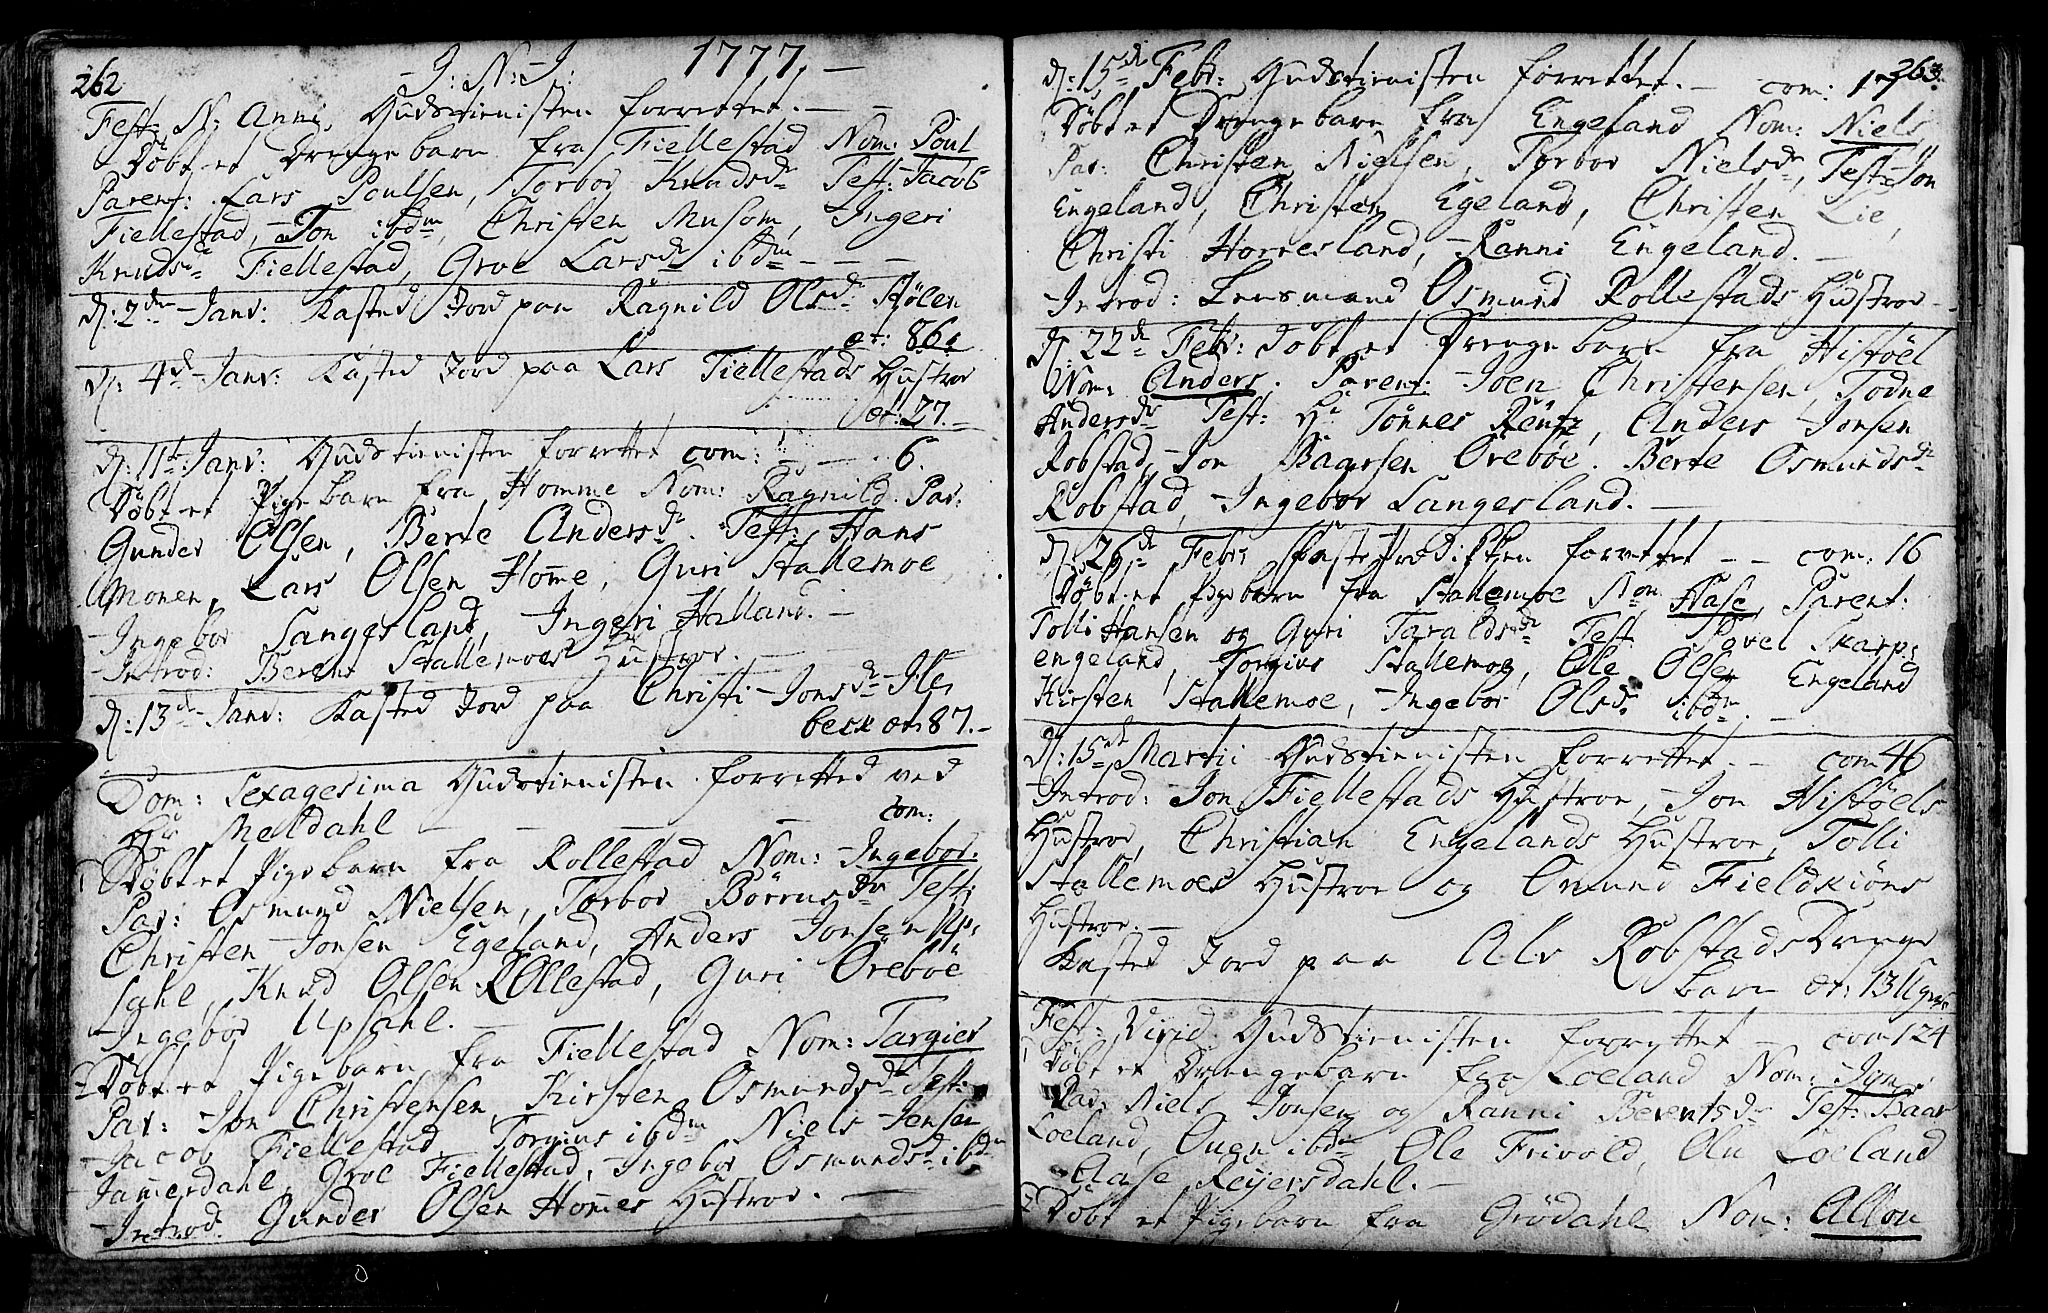 262
J: N: J: 1777. —
Fest: N: Anni, Gudstienisten forrettet. — —
Døbt et Drengebarn fra Fiellestad Nom: Poul
Parent: Lars Poulsen, Torbor Knudsdr Test: Jacob
Fiellestad, Jon ibdm, Christen Musom, Ingeri
Knudsdr Fiellestad, Groe Larsdr ibdm — — —
d: 2den Janv: Kasted Jord paa Ragnild Olsdr Stølen
æt: 86.
d: 4de Janv: Kasted Jord paa Lars Fiellestads Hustroe
æt: 27. —
d: 11te Janv: Gudstienisten forrettet com: — — 6.
Døbt et Pigebarn fra Homme Nom: Ragnild. Par:
Gunder Olsen, Berte Andersdr. Test: Hans
Monen, Lars Olsen Home, Guri Stallemoe,
Ingebor Langesland, Ingeri Halland. —
Introd: Berent Stallemoes Hustroe. —
d: 13de Janv: Kasted Jord paa Christi Jonsdr Ile
beck æt: 87. —
Dom: Sexagesima Gudstienisten forretted ved
Hr Meldahl — — — — com:
1) Døbt et Pigebarn fra Rollestad Nom: Ingebor.
Par: Osmund Nielsen, Torbor Børrusdr Test:
Christen Jonsen Egeland, Anders Jonsen Up-
sahl, Knud Olsen Rollestad, Guri Ørebøe
Ingebor Upsahl. —
2 Døbt et Pigebarn fra Fiellestad Nom: Targier
Par: Jon Christensen, Kirsten Osmundsdr Test:
Jacob Fiellestad, Torgius ibdm Niels Jensen
Jamerdahl, Groe Fiellestad, Ingebor Osmundsdr ibdm
Introd: Gunder Olsen Homes Hustroe. —
263.
d: 15de Febr: Gudstienisten forrettet. — com: 17
Døbt et Drengebarn fra Engeland Nom: Niels
Par: Christen Nielsen, Torbor Nielsdr, Test: Jon
Engeland, Christen Egeland, Christen Lie,
Christi Horresland, Ranni Engeland. —
Introd: Lensmand Osmund Rollestads Hustroe —
d: 22de Febr: døbt et Drengebarn fra Histøel
Nom: Anders. Parent: Joen Christensen, Todne
Andersdr Test: Hr Tønnes Rentz, Anders Jonsen
Robstad, Jon Baarsen Ørebøe. Berte Osmundsdr
Robstad, Ingebor Langesland. —
d: 26de Febr Fasteprædikken forrettet — — com: 16
Døbt et Pigebarn fra Stallemoe Nom Aase, Parent:
Tolli Hansen og Guri Taraldsdr Test Povel Skarp-
engeland, Torgius Stallemoe, Ole Olsen Engeland
Kirsten Stallemoe, Ingebor Olsdr ibdm. —
d: 15de Martii Gudstienisten forrettet. — com 46
Introd: Jon Fiellestads Hustroe, Jon Histøels
Hustroe, Christian Engelands Hustroe, Tolli
Stallemoes Hustroe og Omund Fieldkiøns
Hustroe. —
Kasted Jord paa Alv Robstads Drenge
barn æt: 13 Uger
Fest: Virid Gudstienisten forrettet — com 124
1 Døbt et Drengebarn fra Loeland Nom: Jon.
Par: Niels Jonsen og Ranni Berentsdr Test: Baar
Loeland, Ouen ibdm Ole Frivold, Olu Loeland
Aase Reiersdahl. —
2 Døbt et Pigebarn fra Grødahl Nom: Allou